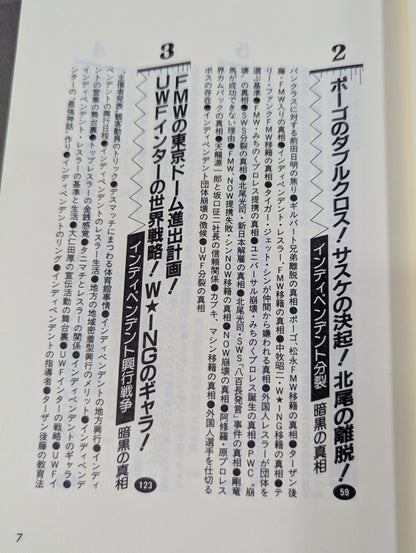 2
ポーゴのダブルクロス！サスケの決起！北尾の離脱！
インディペンデント分裂 暗黒の真相
59
パンクラスに対する前田日明の焦り●ギルバート兄弟離脱の真相●ポーゴ、松永FMW移籍の真相●ターザン後
藤・FMW入りの真相●インディペンデント・レスラー、FMW移籍の真相●中牧昭二・W★ING移籍の真相●テ
リー・ファンクFMW移籍の真相●タイガー・ジェット・シンが仲間から嫌われる真相●外国人レスラーが団体を
選ぶ基準●FMW・みちのくプロレス提携の真相●ユニバーサル崩壊・みちのくプロレス誕生の真相●PWC“崩
壊”の真相●SWS分裂の真相●北尾光司・新日本解雇の真相●北尾光司・SWS“八百長発言”事件の真相●剛竜
馬が成功できない理由●FMW、NOW提携失敗・シンNOW移籍の真相●NOW崩壊の真相●阿修羅・原プロレス
界カムバックの真相●天龍源一郎と坂口征二社長の信頼関係●カブキ、マシン移籍の真相●外国人選手を仕切る
ボスの存在●インディペンデント団体崩壊の徴候●UWF分裂の真相
3
FMWの東京ドーム進出計画！
UWFインターの世界戦略！W★INGのギャラ！
インディペンデント興行戦争 暗黒の真相
123
主催者発表・観客動員のトリック●デスマッチにまつわる体育館事情●インディペンデントの地方興行●インディ
ペンデントの興行日程●インディペンデントのレスラー生活●地方の地域密着型興行のメリット●インディペンデ
ントの営業の舞台裏●トップレスラーの金銭感覚●タニマチとレスラーの関係●インディペンデントのギャラ●イ
ンディペンデント・レスラーの基準と生活●大仁田厚の宣伝活動の舞台裏●UWFインターの戦略●UWFイ
ンターの「最強神話」作り●インディペンデントのリング●インディペンデントの指導者●ターザン後藤の教育法
7